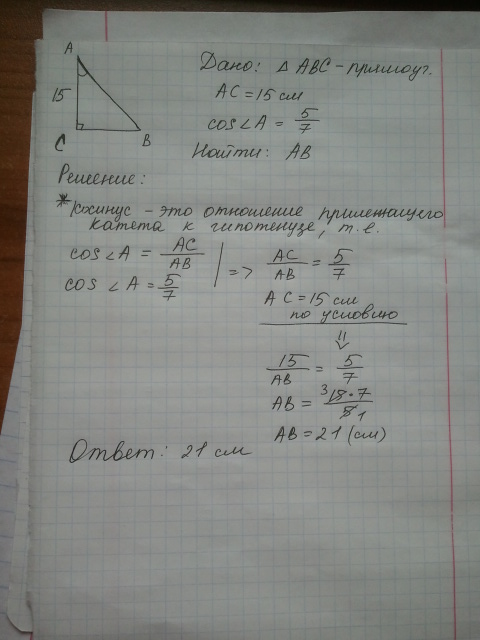 A
15
C
B
Дано: △ ABC - прямоуг.
AC = 15 см
cos∠A = 5/7
Найти: AB
Решение:
* косинус - это отношение прилежащего
катета к гипотенузе, т.е.
cos ∠A = AC/AB
cos ∠A = 5/7
=> AC/AB = 5/7
AC = 15 см
по условию
⇓
15/AB = 5/7
AB = 3 15·7/5 1
AB = 21 (см)
Ответ: 21 см